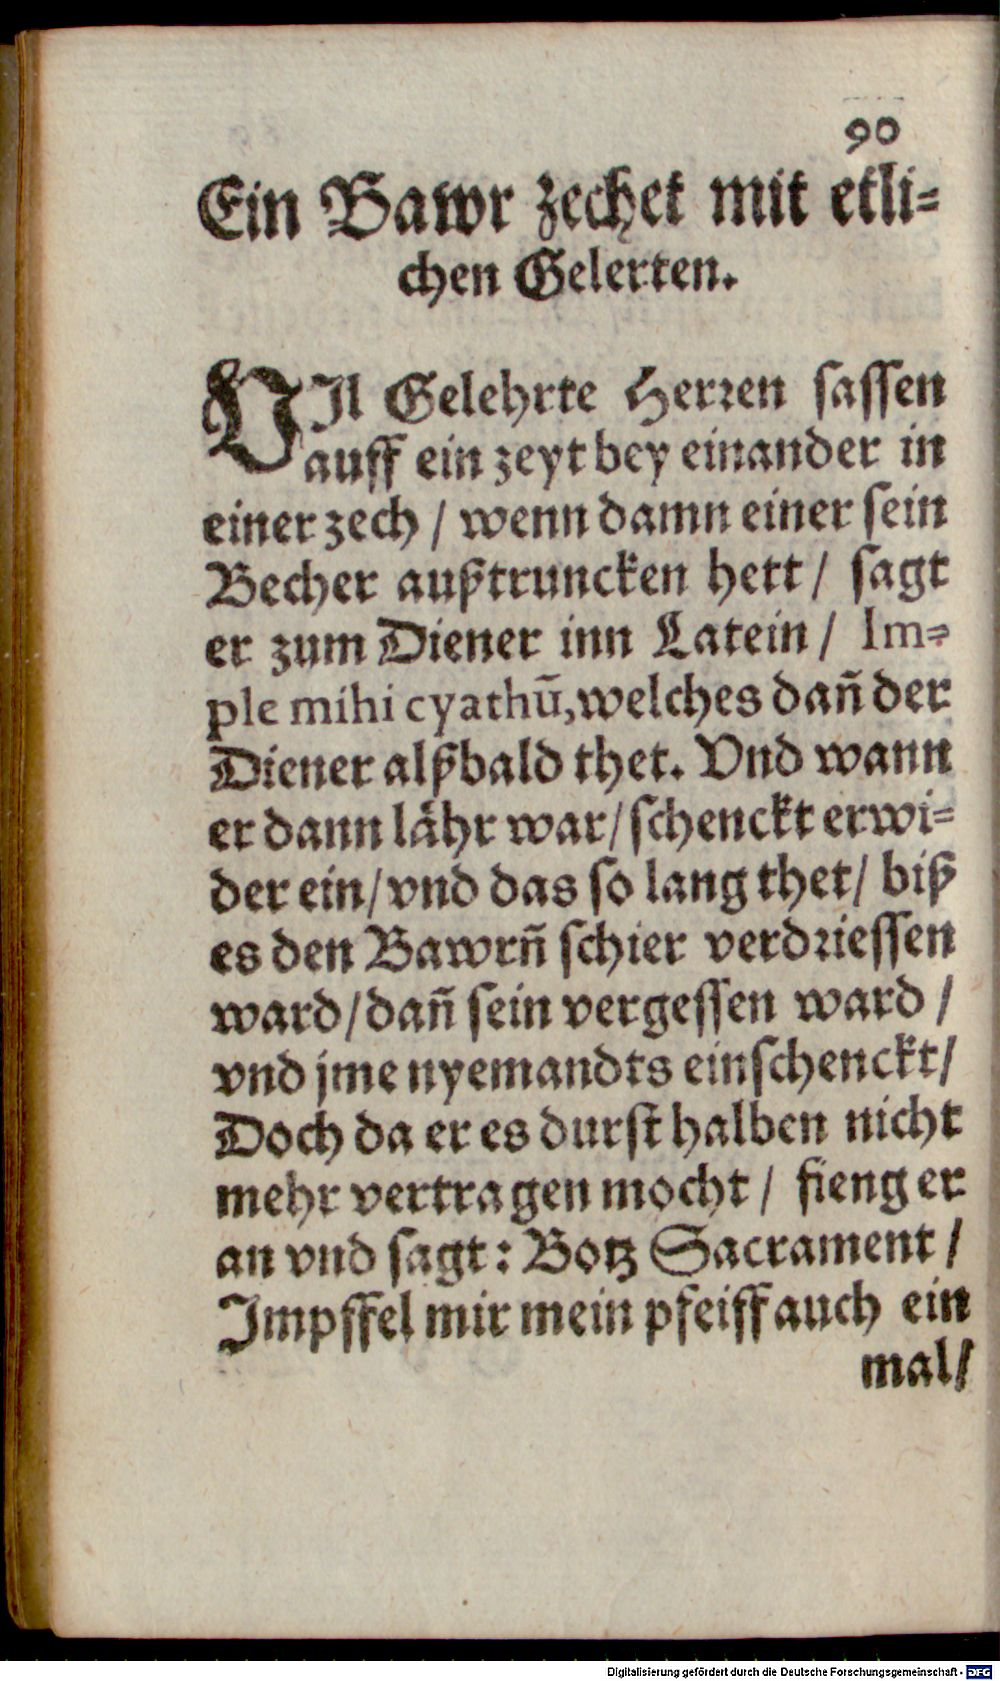 90
Ein Bawr zechet mit etli=
chen Gelerten.
VIl Gelehrte Herren sassen
auff ein zeyt bey einander in
einer zech / wenn damn einer sein
Becher außtruncken hett / sagt
er zum Diener inn Latein / Im=
ple mihi cyathū, welches dañ der
Diener alßbald thet. Vnd wann
er dann lähr war / schenckt er wi=
der ein / vnd das so lang thet / biß
es den Bawrñ schier verdriessen
ward / dañ sein vergessen ward /
vnd jme nyemandts einschenckt /
Doch da er es durst halben nicht
mehr vertragen mocht / fieng er
an vnd sagt: Botz Sacrament /
Impffel mir mein pfeiff auch ein
mal /
Digitalisierung gefördert durch die Deutsche Forschungsgemeinschaft - DFG